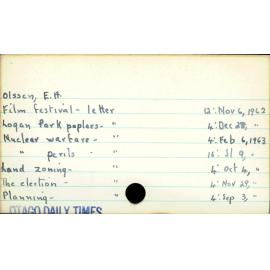 Olssen, E.A.
Film Festival - letter 12: Nov 6, 1962
Logan Park poplars - " 4: Dec 28, "
Nuclear warfare - " 4: Feb 6, 1963
" perils - " 16: Jl 9, "
Land zoning - " 4: Oct 4, "
The election - " 4: Nov 29, "
Planning - " 4: Sep 3, "
OTAGO DAILY TIMES